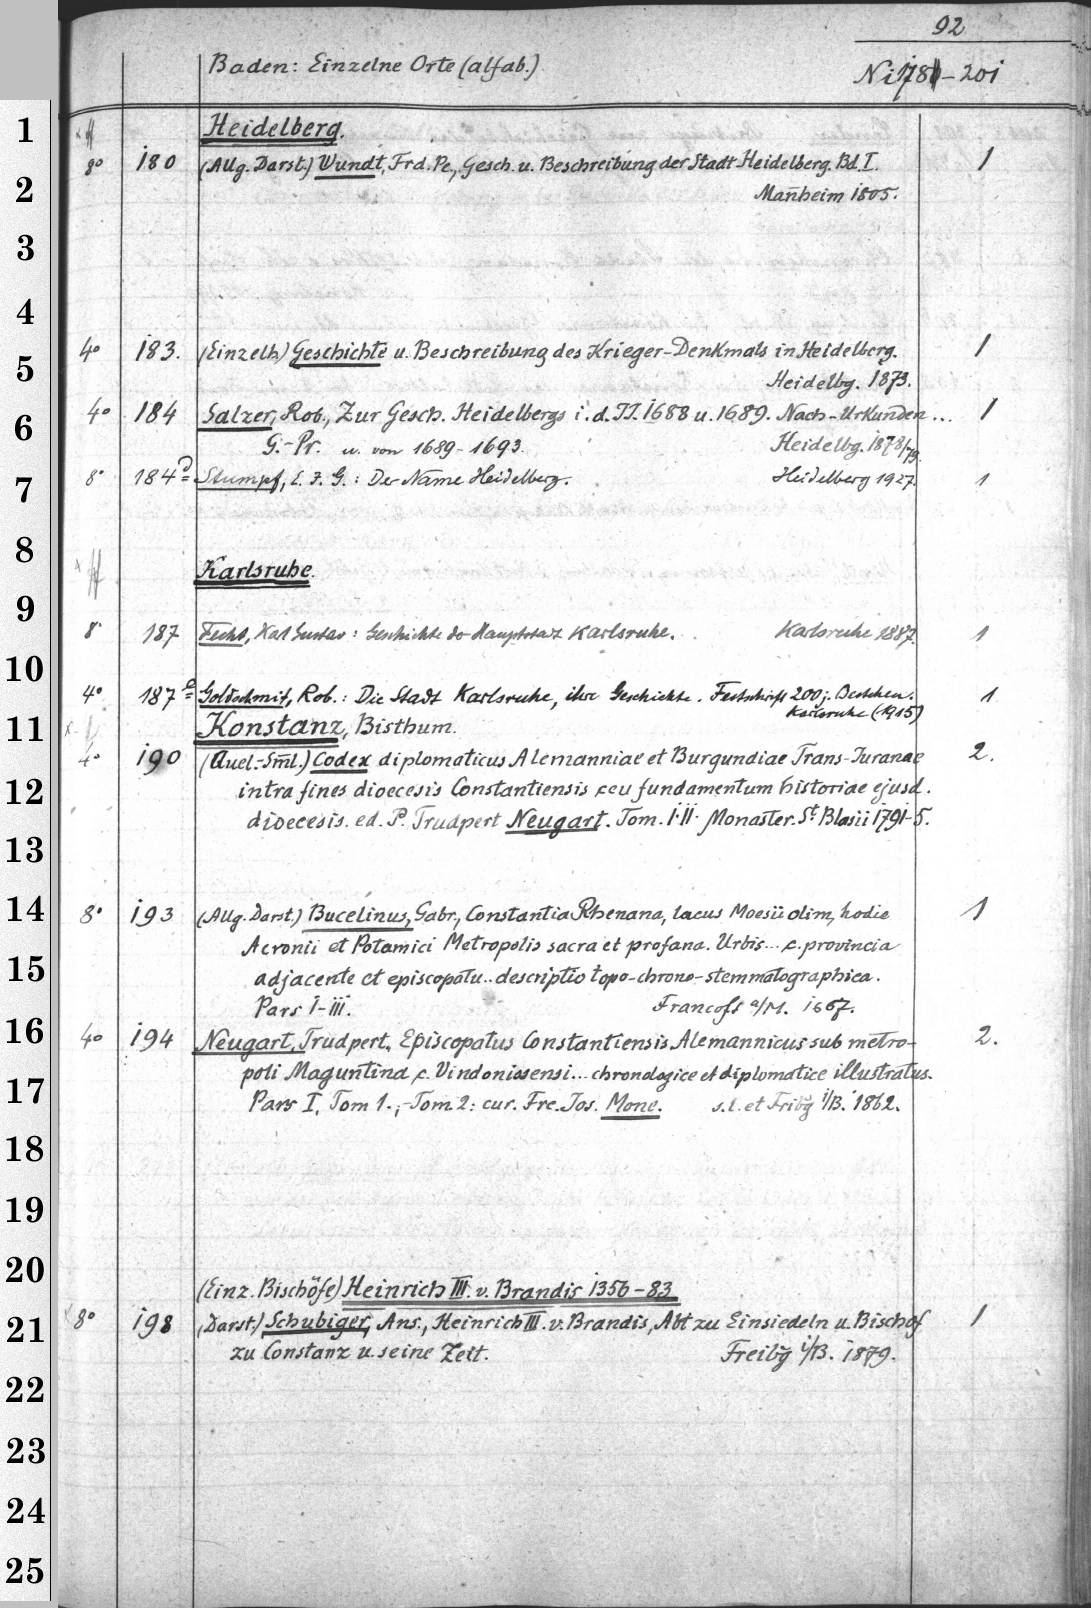 92
Baden: Einzelne Orte (alfab.) Ni 178 - 201
1 Heidelberg.
8° 180 (Allg. Darst.) Wundt, Frd. Pe., Gesch. u. Beschreibung der Stadt Heidelberg. Bd. I. 1
2 Manheim 1805.
3
4
4° 183. (Einzelh.) Geschichte u. Beschreibung des Krieger-Denkmals in Heidelberg. 1
5 Heidelbg. 1873.
6 4° 184 Salzer, Rob., Zur Gesch. Heidelbergs i. d. JJ. 1688 u. 1689. Nach-Urkunden ... 1
G.-Pr. u. von 1689-1693. Heidelbg. 1878/79.
7 8° 184 Stumpf, E. J. G.: Der Name Heidelberg. Heidelberg 1927. 1
8 Karlsruhe.
9 8° 187 Fecht, Karl Gustav: Geschichte der Hauptstadt Karlsruhe. Karlsruhe 1887. 1
10 4° 187a Goldschmit, Rob.: Die Stadt Karlsruhe, ihre Geschichte. Festschrift 200j. Bestehen. 1
Karlsruhe (1915)
11 Konstanz, Bisthum.
4° 190 (Quel.-Sml.) Codex diplomaticus Alemanniae et Burgundiae Trans-Juranae 2.
12 intra fines dioecesis Constantiensis ceu fundamentum historiae ejusd.
dioecesis. ed. P. Trudpert Neugart. Tom. I-II. Monaster. St. Blasii 1791-5.
13
14 8° 193 (Allg. Darst.) Bucelinus, Gabr., Constantia Rhenana, lacus Moesii olim, hodie 1
Acronii et Potamici Metropolis sacra et profana. Urbis... c. provincia
15 adjacente et episcopatu.. descriptio topo-chrono-stemmatographica.
Pars I-III. Francoft a/M. 1667.
16 4° 194 Neugart, Trudpert, Episcopatus Constantiensis Alemannicus sub metro- 2.
17 poli Maguntina c. Vindonissensi... chronologice et diplomatice illustratus.
Pars I, Tom 1.; -Tom 2: cur. Frc. Jos. Mone. s.l. et Fribg i/B. 1862.
18
19
20 (Einz. Bischöfe) Heinrich III. v. Brandis 1356-83
21 8° 198 (Darst.) Schubiger, Ans., Heinrich III. v. Brandis, Abt zu Einsiedeln u. Bischof 1
zu Constanz u. seine Zeit. Freibg i/B. 1879.
22
23
24
25